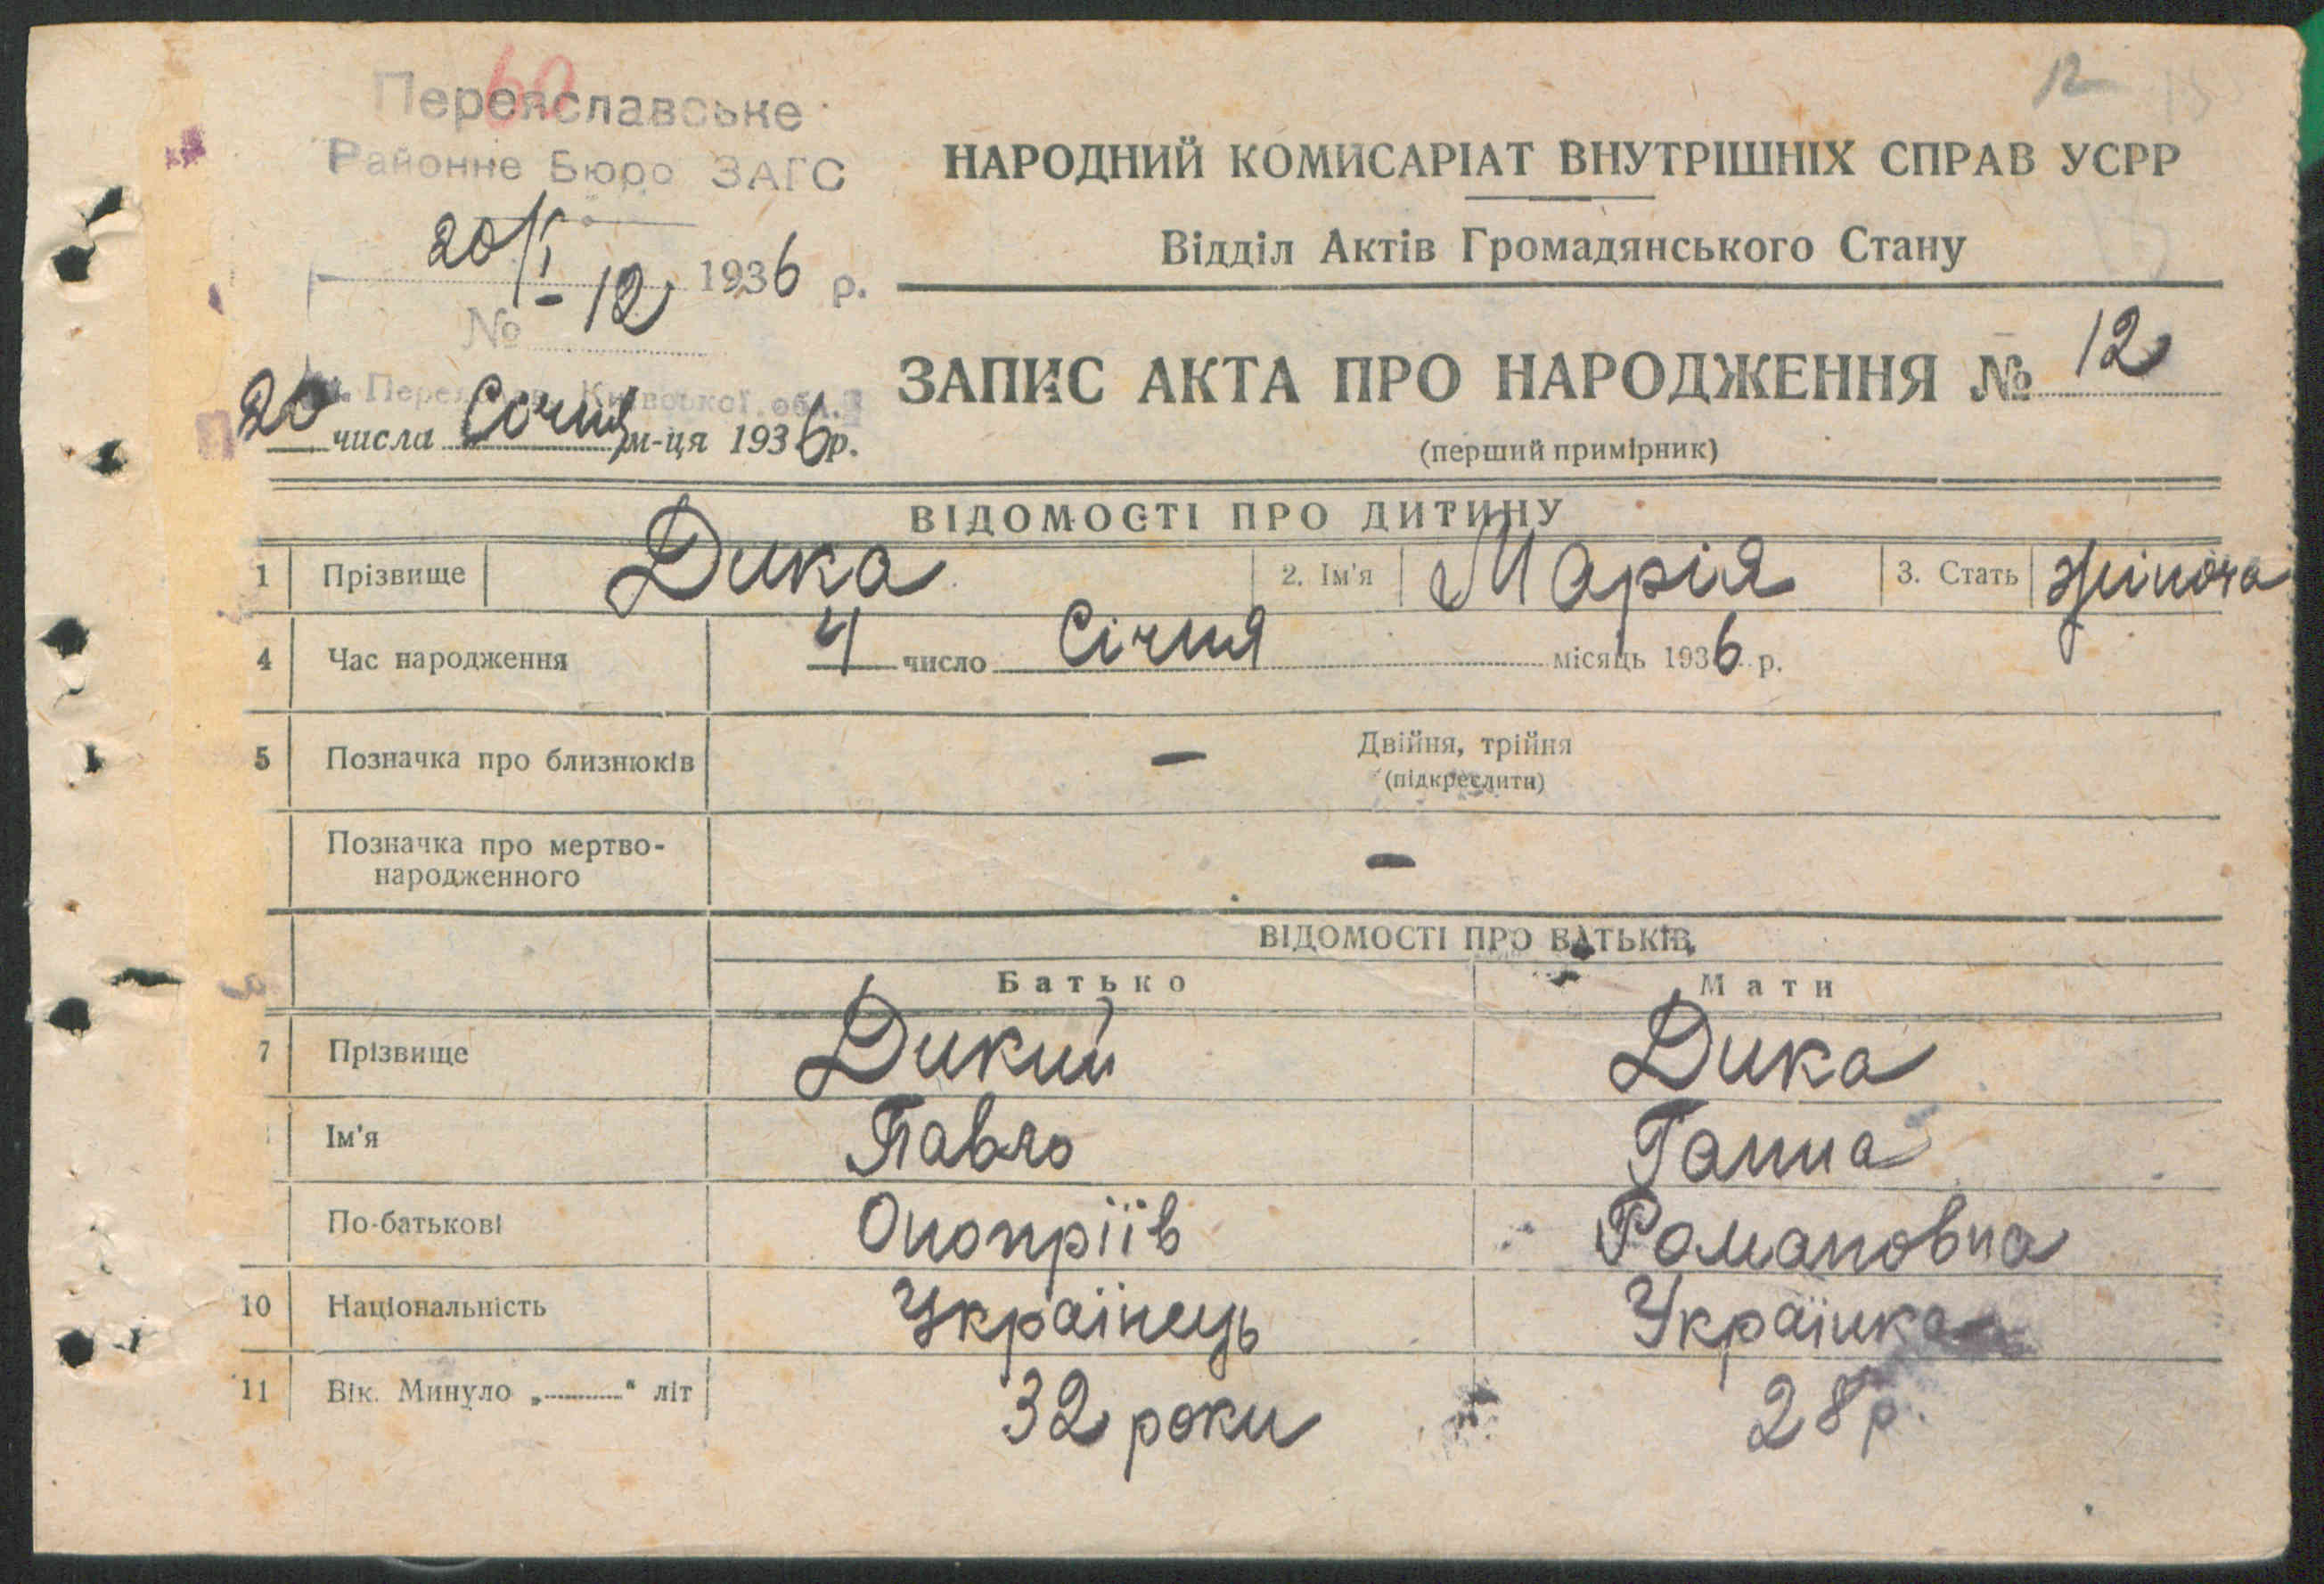 60
12
Переяславське
Районне Бюро ЗАГС
20/I 1936 р.
№ - 12
м. Переяслав Київської обл.
20 числа Січня м-ця 1936 р.
НАРОДНИЙ КОМИСАРІАТ ВНУТРІШНІХ СПРАВ УСРР
Відділ Актів Громадянського Стану
ЗАПИС АКТА ПРО НАРОДЖЕННЯ № 12
(перший примірник)
ВІДОМОСТІ ПРО ДИТИНУ
1 Прізвище Дика 2. Ім'я Марія 3. Стать жіноча
4 Час народження 4 число Січня місяць 1936 р.
5 Позначка про близнюків — Двійня, трійня
(підкреслити)
Позначка про мертво-
народженного —
ВІДОМОСТІ ПРО БАТЬКІВ
Батько Мати
7 Прізвище Дикий Дика
Ім'я Павло Ганна
По-батькові Онопріїв Романовна
10 Національність Українець Українка
11 Вік. Минуло „ “ літ 32 роки 28 р.